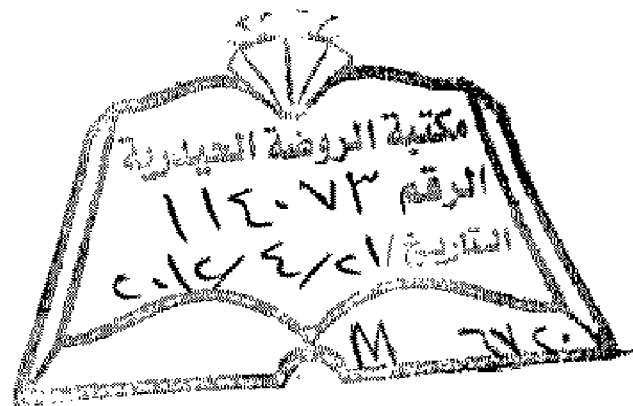 مكتبة الروضة الحيدرية
الرقم ١١٤٠٧٣
التاريخ / ٢١ / ٤ / ٢٠١٢
M ٦٧٢٠